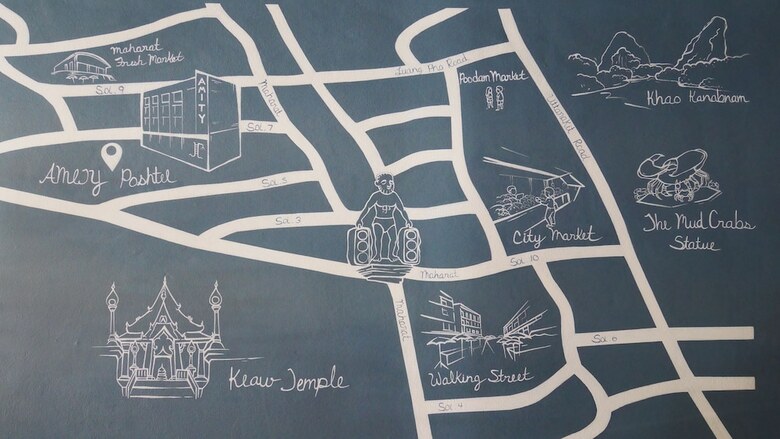 Maharat
Fresh Market
Soi. 9
AMITY
Maharat
Luang Pho Road
Poodam Market
Khao Kanabnam
Soi. 7
Poshtel
Soi. 5
Soi. 3
City Market
The Mud Crabs
Statue
Maharat
Soi. 10
Keaw Temple
Walking Street
Soi. 6
Soi. 4